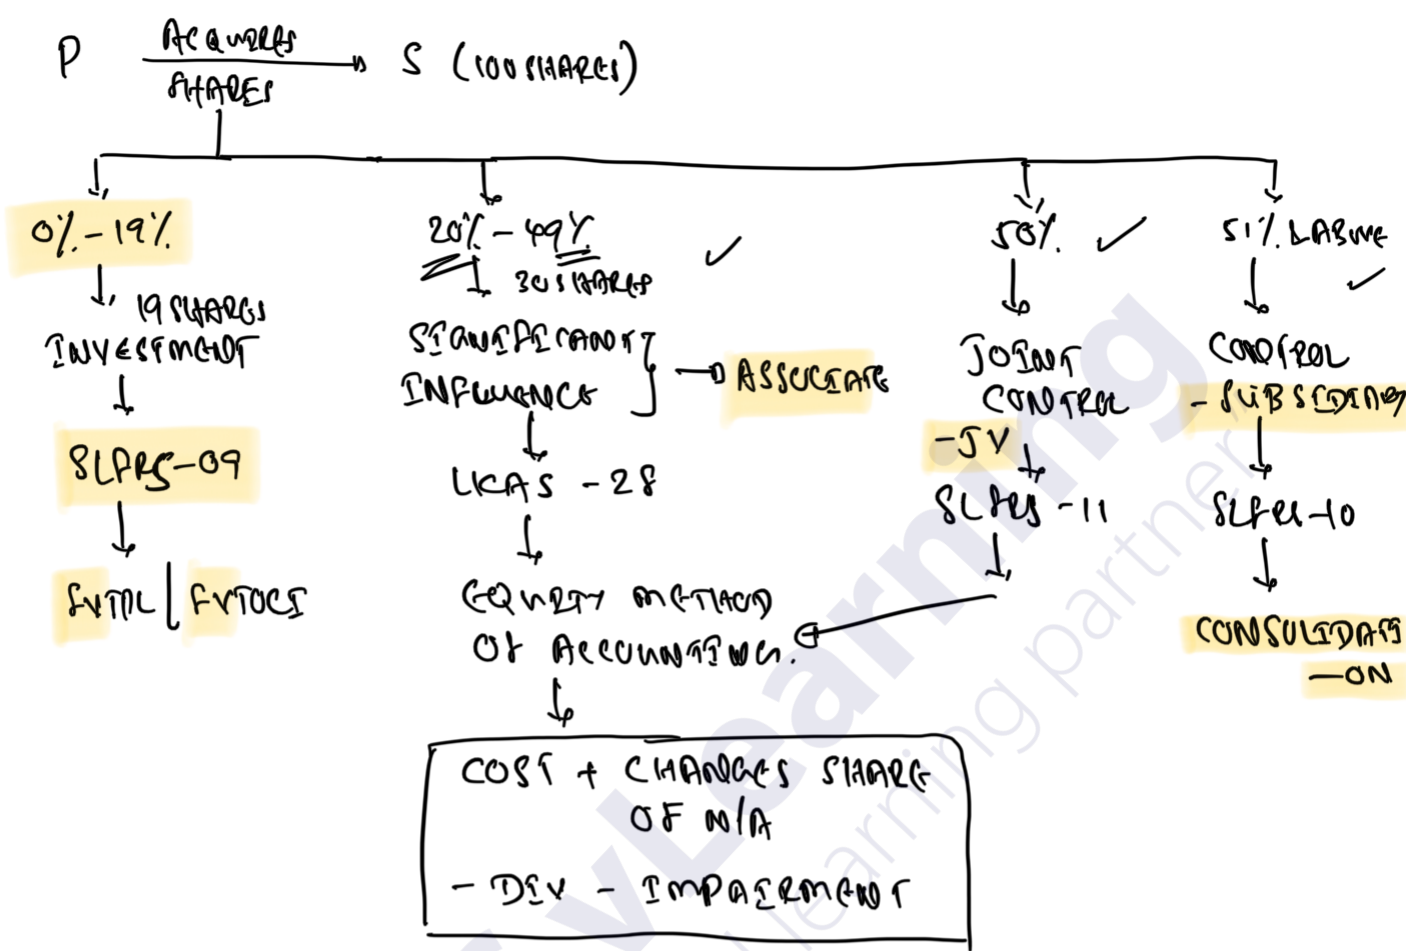 P ACQUIRES SHARES → S (100 SHARES)
0% - 19%
19 SHARES
INVESTMENT
SLFRS-09
FVTPL | FVTOCI
20% - 49%
30 SHARES
SIGNIFICANT
INFLUENCE
→ ASSOCIATE
LKAS - 28
EQUITY METHOD
OF ACCOUNTING.
COST + CHANGES SHARE
OF N/A
- DIV - IMPAIRMENT
50%
JOINT
CONTROL
- JV
SLFRS - 11
51% & ABOVE
CONTROL
- SUBSIDIARY
SLFRS - 10
CONSOLIDATI
- ON
vLearning
learning partner